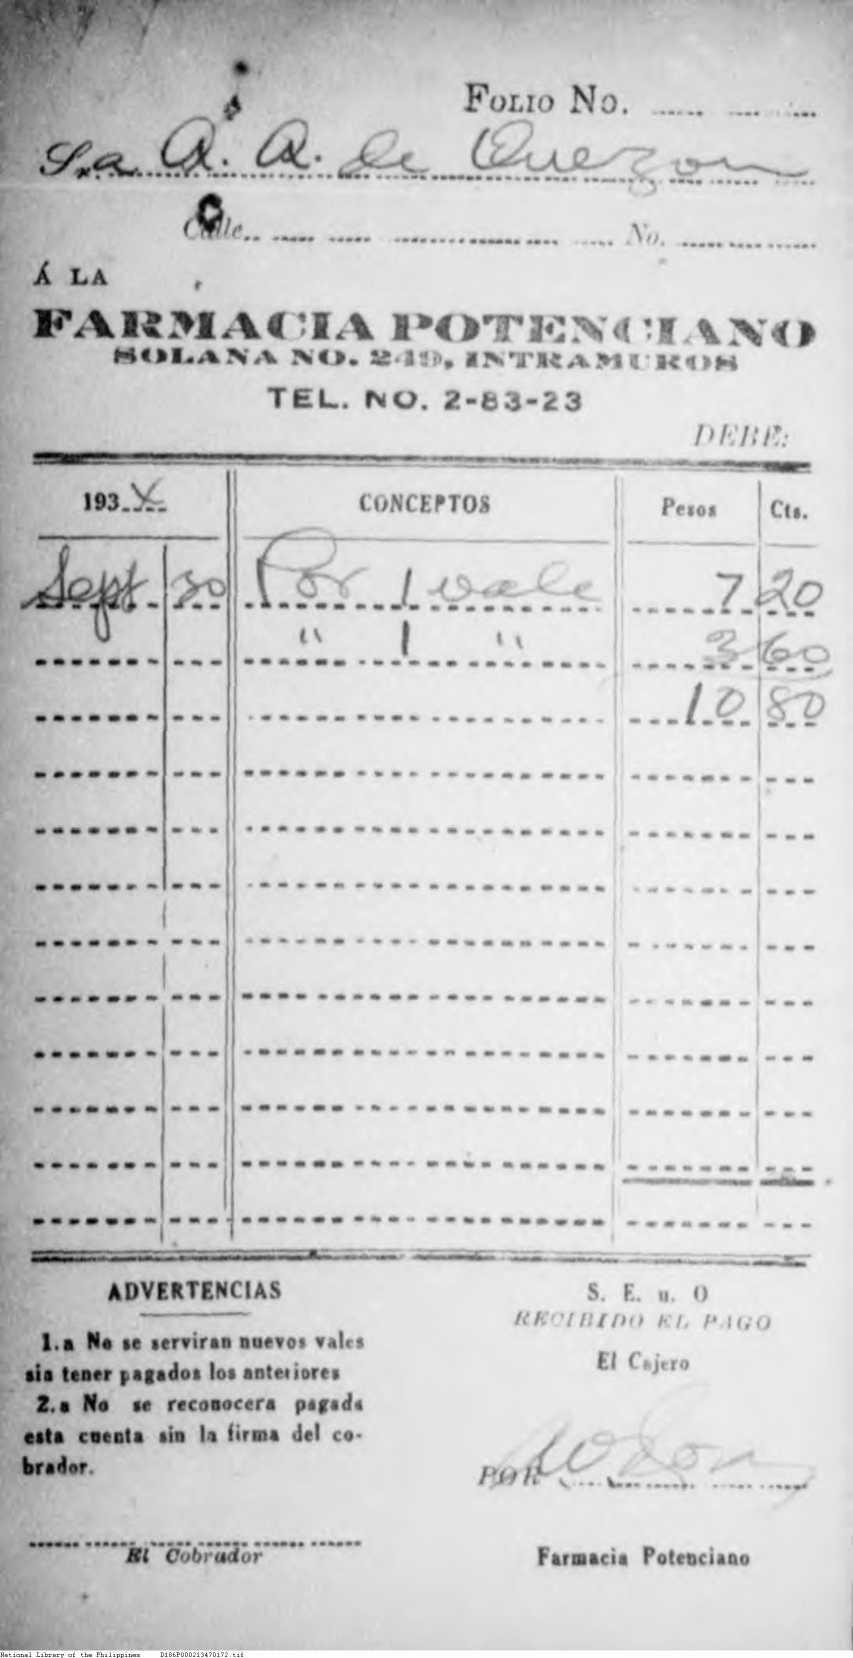 FOLIO No.
Sra A. A. de Quezon
Calle No.
Á LA
FARMACIA POTENCIANO
SOLANA NO. 249, INTRAMUROS
TEL. NO. 2-83-23
DEBE:
193 CONCEPTOS Pesos Cts.
Sept 30 Por 1 vale 7 20
" 1 " 3 60
10 80
ADVERTENCIAS
1.a No se serviran nuevos vales
sin tener pagados los anteriores
2.a No se reconocera pagada
esta cuenta sin la firma del co-
brador.
El Cobrador
S. E. u. O
RECIBIDO EL PAGO
El Cajero
POR
Farmacia Potenciano
National Library of the Philippines D186P000213470172.tif